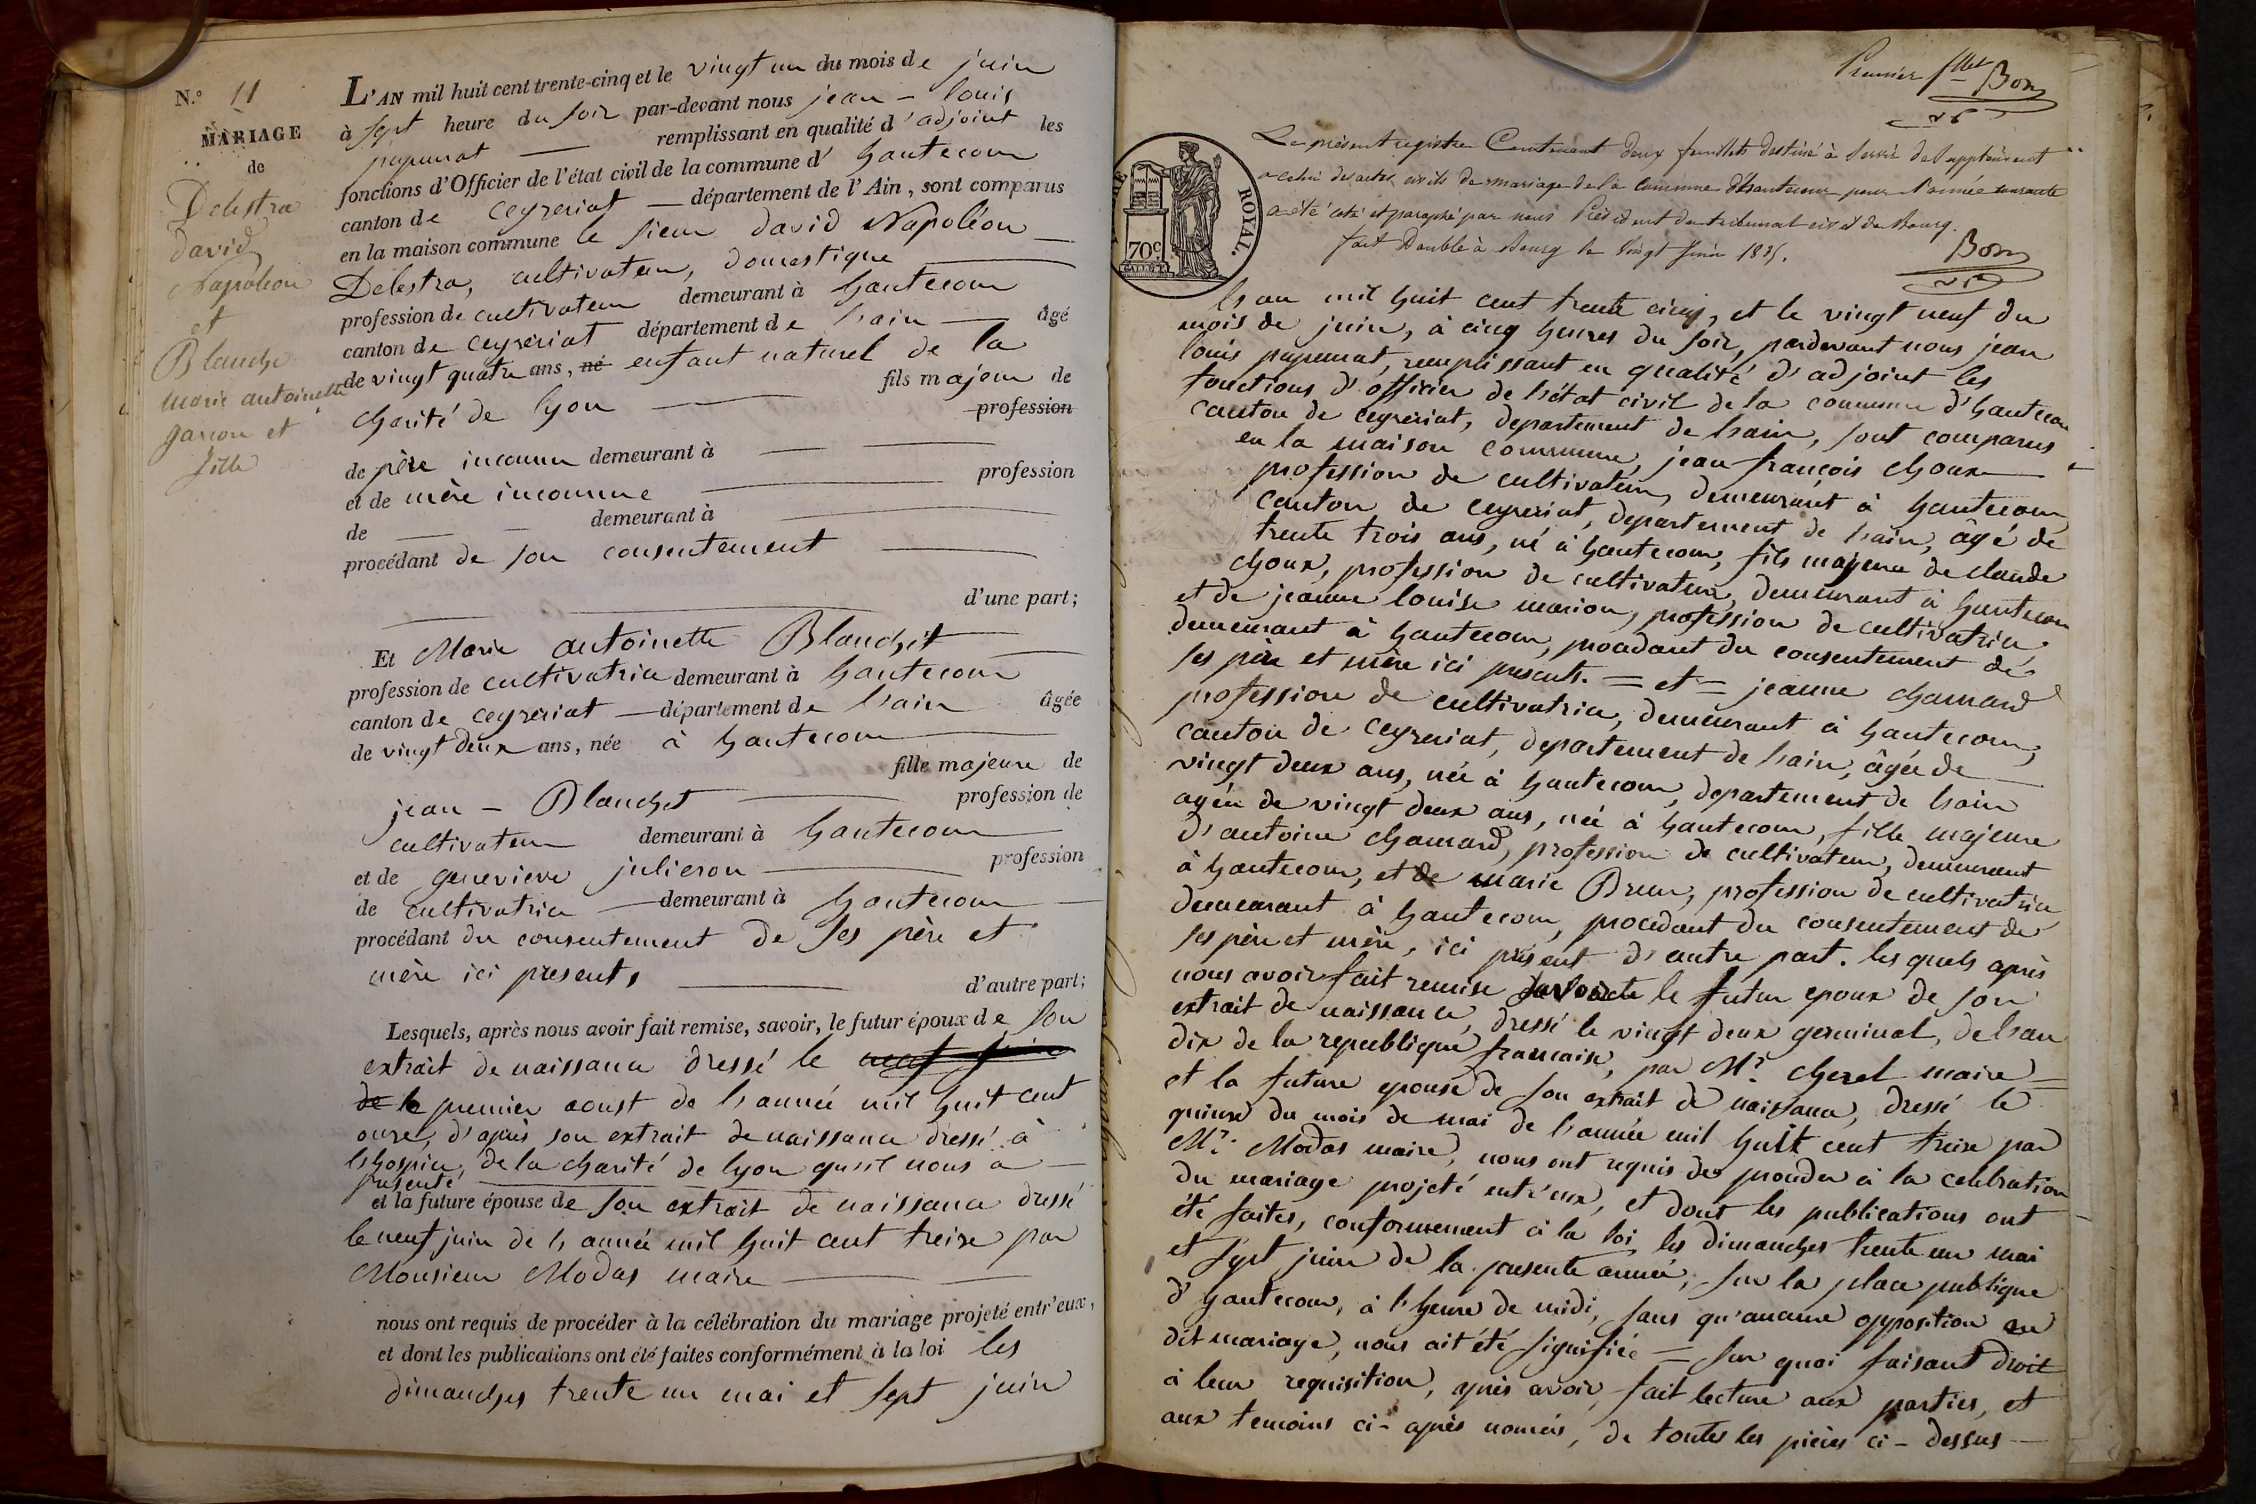 N.° 11
MARIAGE
de
Delestra
david
Napoléon
et
Blanchet
marie antoinette
garcon et
fille
L'AN mil huit cent trente-cinq et le vingt un du mois de juin
à sept heure du soir par-devant nous jean - louis
papunat — remplissant en qualité d'adjoint les
fonctions d'Officier de l'état civil de la commune d' hautecour
canton de ceyzeriat — département de l'Ain, sont comparus
en la maison commune le sieur david Napoléon —
Delestra, cultivateur, domestique —
profession de cultivateur demeurant à hautecour
canton de ceyzeriat département de l'ain — âgé
de vingt quatre ans, né enfant naturel de la
charité de lyon — fils majeur de
profession
de père inconnu demeurant à —
et de mère inconnue — profession
de — demeurant à —
procédant de son consentement —
d'une part;
Et Marie antoinette Blanchet —
profession de cultivatrice demeurant à hautecour
canton de ceyzeriat — département de l'ain âgée
de vingt deux ans, née à hautecour —
fille majeure de
jean - Blanchet — profession de
cultivateur demeurant à hautecour
et de genevieve julieron — profession
de cultivatrice — demeurant à hautecour —
procédant du consentement de ses père et
mère ici presents — d'autre part;
Lesquels, après nous avoir fait remise, savoir, le futur époux de son
extrait de naissance dressé le neuf juin
de le premier aoust de l'année mil huit cent
onze, d'après son extrait de naissance dressé à
l'hospice, de la charité de lyon qu'il nous a —
presenté —
et la future épouse de son extrait de naissance dressé
le neuf juin de l'année mil huit cent treize par
Monsieur Modas maire —
nous ont requis de procéder à la célébration du mariage projeté entr'eux,
et dont les publications ont été faites conformément à la loi les
dimanches trente un mai et sept juin
Premier fllet Bon
TIMBRE ROYAL.
70c
Le présent registre Contenant deux feuillets destiné à servir de supplément
a celui des actes civils de mariage de la commune d'hautecour pour l'année courante
a été coté et paraphé par nous Président du tribunal civil de Bourg.
fait Double à Bourg le vingt juin 1835.
Bon
L'an mil huit cent trente cinq, et le vingt neuf du
mois de juin, à cinq heures du soir, pardevant nous jean
louis papunat, remplissant en qualité d'adjoint les
fonctions d'officier de l'état civil de la commune d'hautecour
canton de ceyzeriat, departement de l'ain, sont comparus
en la maison commune, jean françois choux —
profession de cultivateur, demeurant à hautecour,
canton de ceyzeriat, departement de l'ain, âgé de
trente trois ans, né à hautecour, fils majeur de claude
choux, profession de cultivateur, demeurant à hautecour
et de jeanne louise marion, profession de cultivatrice
demeurant à hautecour, procédant du consentement de
ses père et mère ici presents. = et = jeanne chamard
profession de cultivatrice, demeurant à hautecour,
canton de ceyzeriat, departement de l'ain, âgée de
vingt deux ans, née à hautecour, departement de l'ain
agée de vingt deux ans, née à hautecour, fille majeure
d'antoine chamard, profession de cultivateur, demeurant
à hautecour, et de marie Brun, profession de cultivatrice
demeurant à hautecour, procedant du consentement de
ses père et mère, ici présent d'autre part. lesquels après
nous avoir fait remise savoir le futur epoux de son
extrait de naissance, dressé le vingt deux germinal, de l'an
dix de la republique francaise, par Mr. cherel maire —
et la future epouse de son extrait de naissance, dressé le
quinze du mois de mai de l'année mil huit cent treize par
Mr. Modas maire, nous ont requis de proceder à la celebration
du mariage projeté entr'eux, et dont les publications ont
été faites, conformement à la loi, les dimanches trente un mai
et sept juin de la presente année, sur la place publique
d'hautecour, à l'heure de midi, sans qu'aucune opposition au
dit mariage, nous ait été signifiée — sur quoi faisant droit
à leur requisition, après avoir, fait lecture aux parties, et
aux temoins ci-après només, de toutes les pièces ci-dessus —